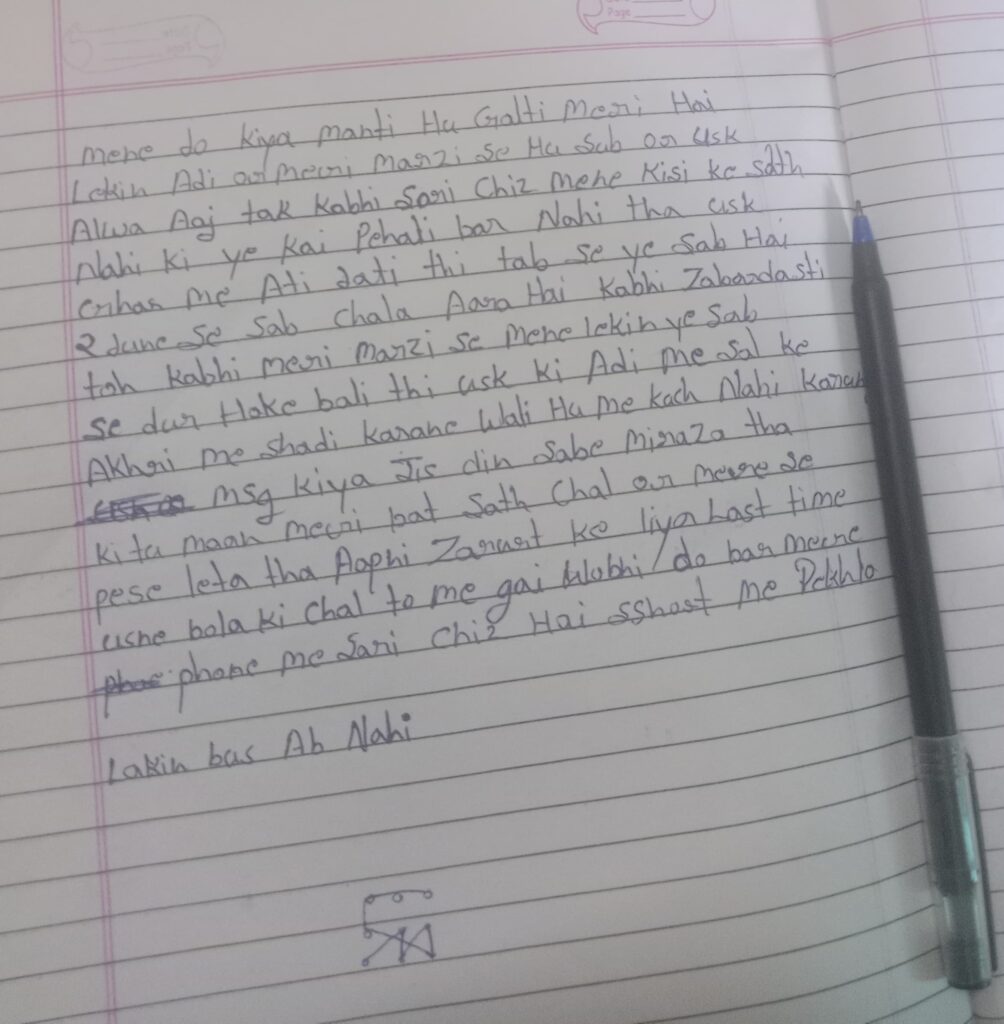 Page
mene do kiya manti Hu Galti meri Hai
Lekin Adi or meri marzi se Hu sub or usk
Alwa Aaj tak kabhi sari chiz mene kisi ke sath
Nahi ki ye kai Pehali bar Nahi tha usk
me Ati Jati thi tab se ye sab Hai
2 June se sab chala Aara Hai kabhi Zabardasti
toh kabhi meri marzi se mene lekin ye sab
se dur Hoke bali thi usk ki Adi me sal ke
Akhri me shadi karane wali Hu me kuch Nahi
msg kiya Jis din sabe tha
ki tu maan meri bat sath chal or mere se
pese leta tha Aaphi Zarurt ke liya Last time
usne bola ki chal to me gai / do bar merne
phone me sari chiz Hai sshost me Dekhlo
Lakin bas Ab Nahi